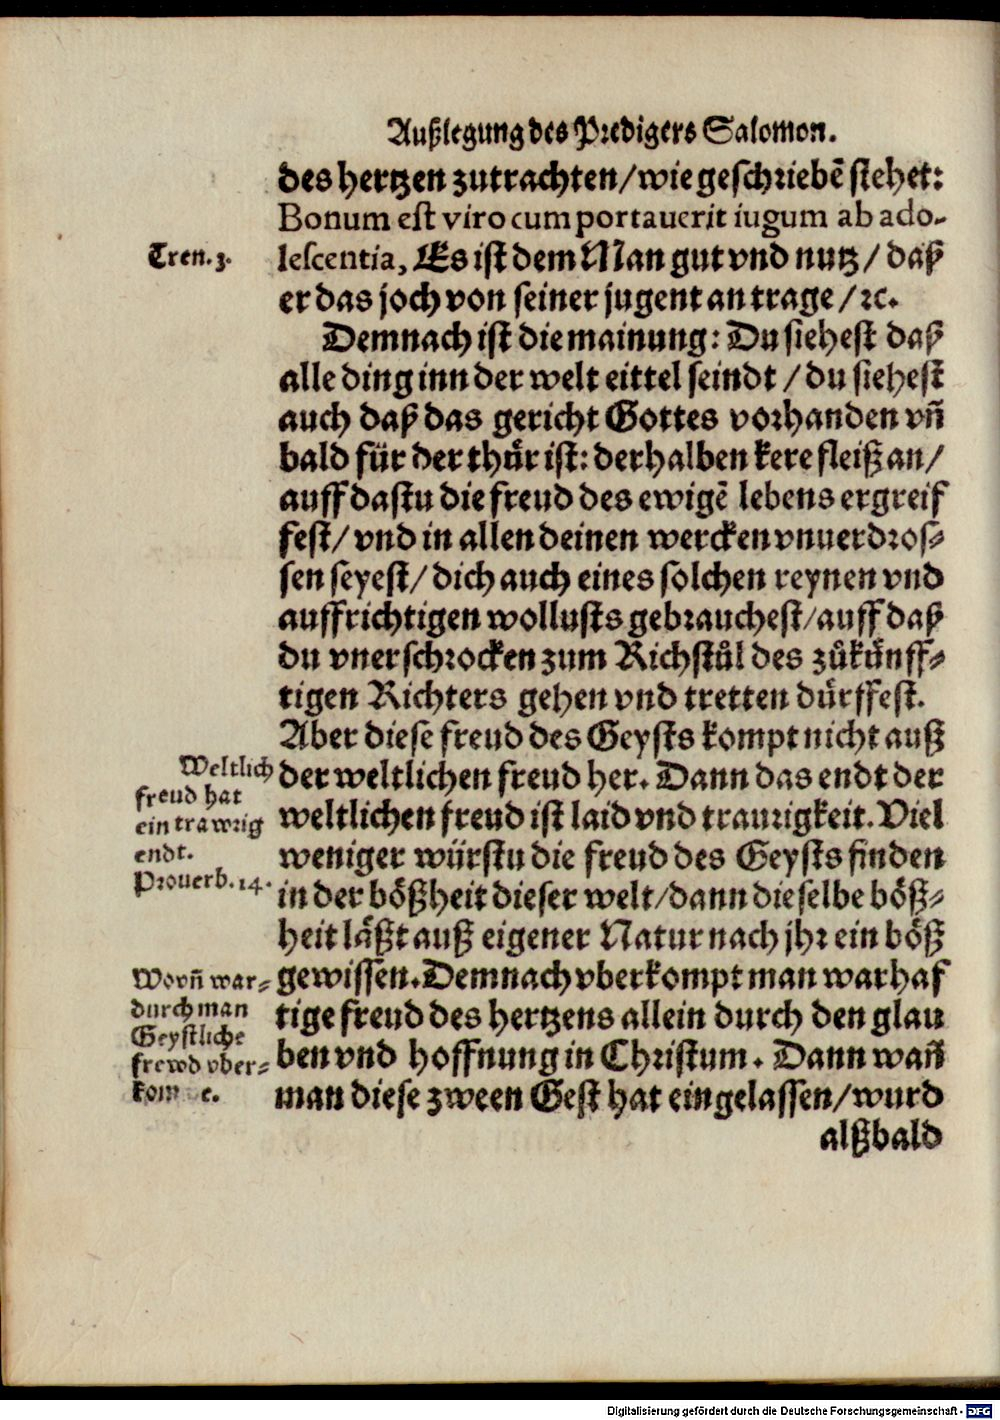 Außlegung des Predigers Salomon.
des hertzen zutrachten/wie geschriebē stehet:
Bonum est viro cum portauerit iugum ab ado-
Tren. 3.
lescentia, Es ist dem Man gut vnd nutz/ daß
er das joch von seiner jugent an trage/ ꝛc.
Demnach ist die mainung: Du siehest daß
alle ding inn der welt eittel seindt / du siehest
auch daß das gericht Gottes vorhanden vñ
bald für der thuͤr ist: derhalben kere fleiß an/
auff dastu die freud des ewigē lebens ergreif
fest/ vnd in allen deinen wercken vnuerdros-
sen seyest/ dich auch eines solchen reynen vnd
auffrichtigen wollusts gebrauchest/auff daß
du vnerschrocken zum Richstuͦl des zuͦkuͤnff-
tigen Richters gehen vnd tretten duͤrffest.
Aber diese freud des Geysts kompt nicht auß
der weltlichen freud her. Dann das endt der
weltlichen freud ist laid vnd traurigkeit. Viel
weniger würstu die freud des Geysts finden
in der boͤßheit dieser welt/dann dieselbe boͤß-
heit laͤßt auß eigener Natur nach jhr ein boͤß
gewissen. Demnach vberkompt man warhaf
tige freud des hertzens allein durch den glau
ben vnd hoffnung in Christum. Dann wañ
man diese zween Gest hat eingelassen/wurd
alßbald
Weltlich
freud hat
ein trawrig
endt.
Prouerb. 14.
war-
durch man
Geystliche
frewd vber-
Digitalisierung gefördert durch die Deutsche Forschungsgemeinschaft - DFG